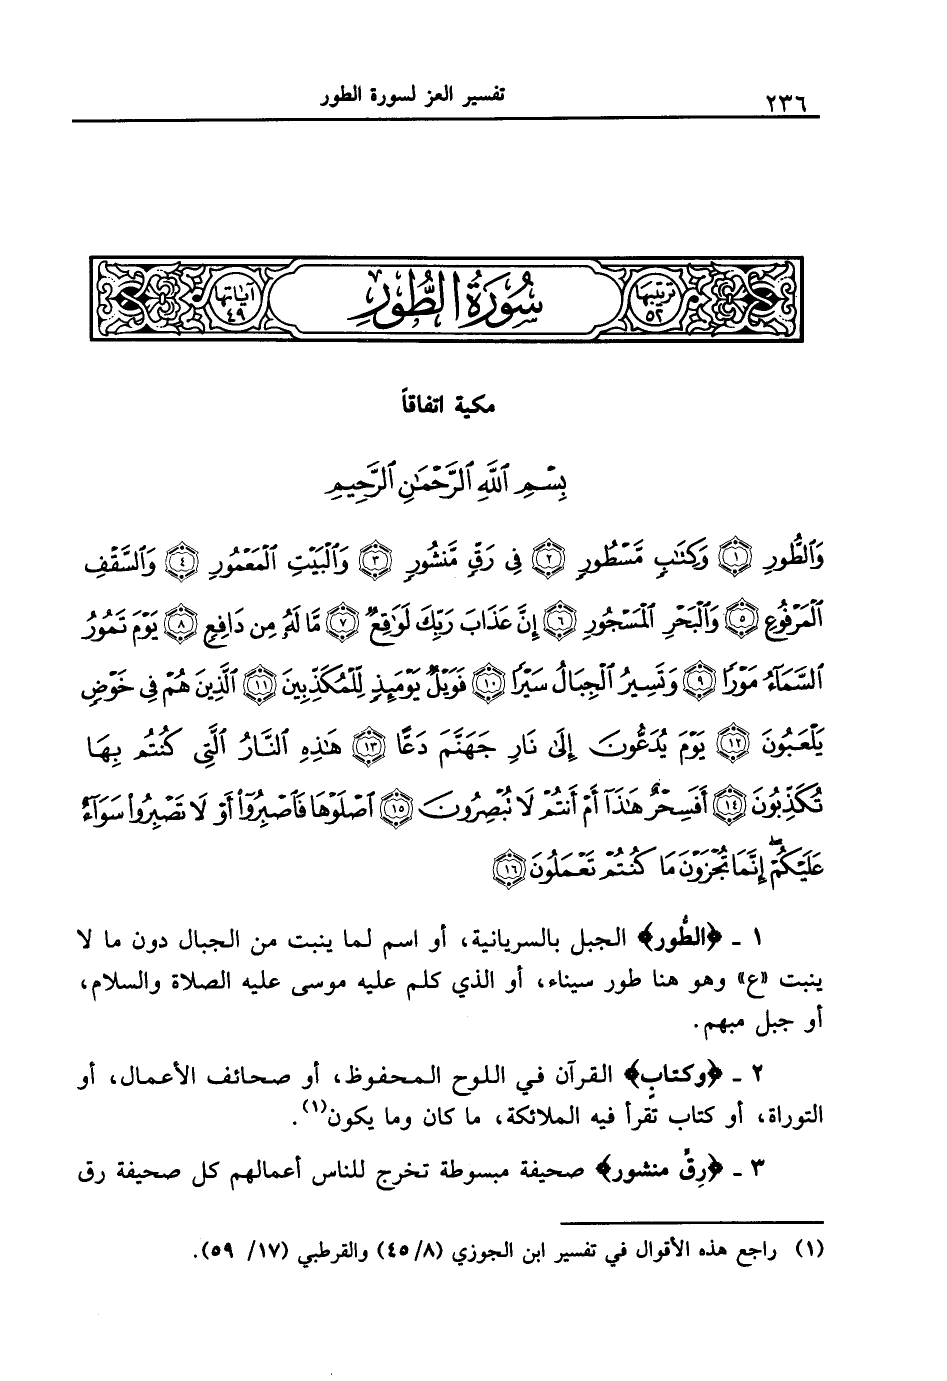 ٢٣٦ تفسير العز لسورة الطور
ترتيبها ٥٢ سُورَةُ الطُّورِ آياتها ٤٩
مكية اتفاقاً
بِسْمِ ٱللَّهِ ٱلرَّحْمَٰنِ ٱلرَّحِيمِ
وَٱلطُّورِ ﴿١﴾ وَكِتَٰبٍ مَّسْطُورٍ ﴿٢﴾ فِى رَقٍّ مَّنشُورٍ ﴿٣﴾ وَٱلْبَيْتِ ٱلْمَعْمُورِ ﴿٤﴾ وَٱلسَّقْفِ
ٱلْمَرْفُوعِ ﴿٥﴾ وَٱلْبَحْرِ ٱلْمَسْجُورِ ﴿٦﴾ إِنَّ عَذَابَ رَبِّكَ لَوَٰقِعٌ ﴿٧﴾ مَّا لَهُۥ مِن دَافِعٍ ﴿٨﴾ يَوْمَ تَمُورُ
ٱلسَّمَآءُ مَوْرًا ﴿٩﴾ وَتَسِيرُ ٱلْجِبَالُ سَيْرًا ﴿١٠﴾ فَوَيْلٌ يَوْمَئِذٍ لِّلْمُكَذِّبِينَ ﴿١١﴾ ٱلَّذِينَ هُمْ فِى خَوْضٍ
يَلْعَبُونَ ﴿١٢﴾ يَوْمَ يُدَعُّونَ إِلَىٰ نَارِ جَهَنَّمَ دَعًّا ﴿١٣﴾ هَٰذِهِ ٱلنَّارُ ٱلَّتِى كُنتُم بِهَا
تُكَذِّبُونَ ﴿١٤﴾ أَفَسِحْرٌ هَٰذَآ أَمْ أَنتُمْ لَا تُبْصِرُونَ ﴿١٥﴾ ٱصْلَوْهَا فَٱصْبِرُوٓا۟ أَوْ لَا تَصْبِرُوا۟ سَوَآءٌ
عَلَيْكُمْ ۖ إِنَّمَا تُجْزَوْنَ مَا كُنتُمْ تَعْمَلُونَ ﴿١٦﴾
١ ـ ﴿الطُّور﴾ الجبل بالسريانية، أو اسم لما ينبت من الجبال دون ما لا
ينبت «ع» وهو هنا طور سيناء، أو الذي كلم عليه موسى عليه الصلاة والسلام،
أو جبل مبهم.
٢ ـ ﴿وكتابٍ﴾ القرآن في اللوح المحفوظ، أو صحائف الأعمال، أو
التوراة، أو كتاب تقرأ فيه الملائكة، ما كان وما يكون(١).
٣ ـ ﴿رِقٍّ منشور﴾ صحيفة مبسوطة تخرج للناس أعمالهم كل صحيفة رق
(١) راجع هذه الأقوال في تفسير ابن الجوزي (٤٥/٨) والقرطبي (١٧/ ٥٩).